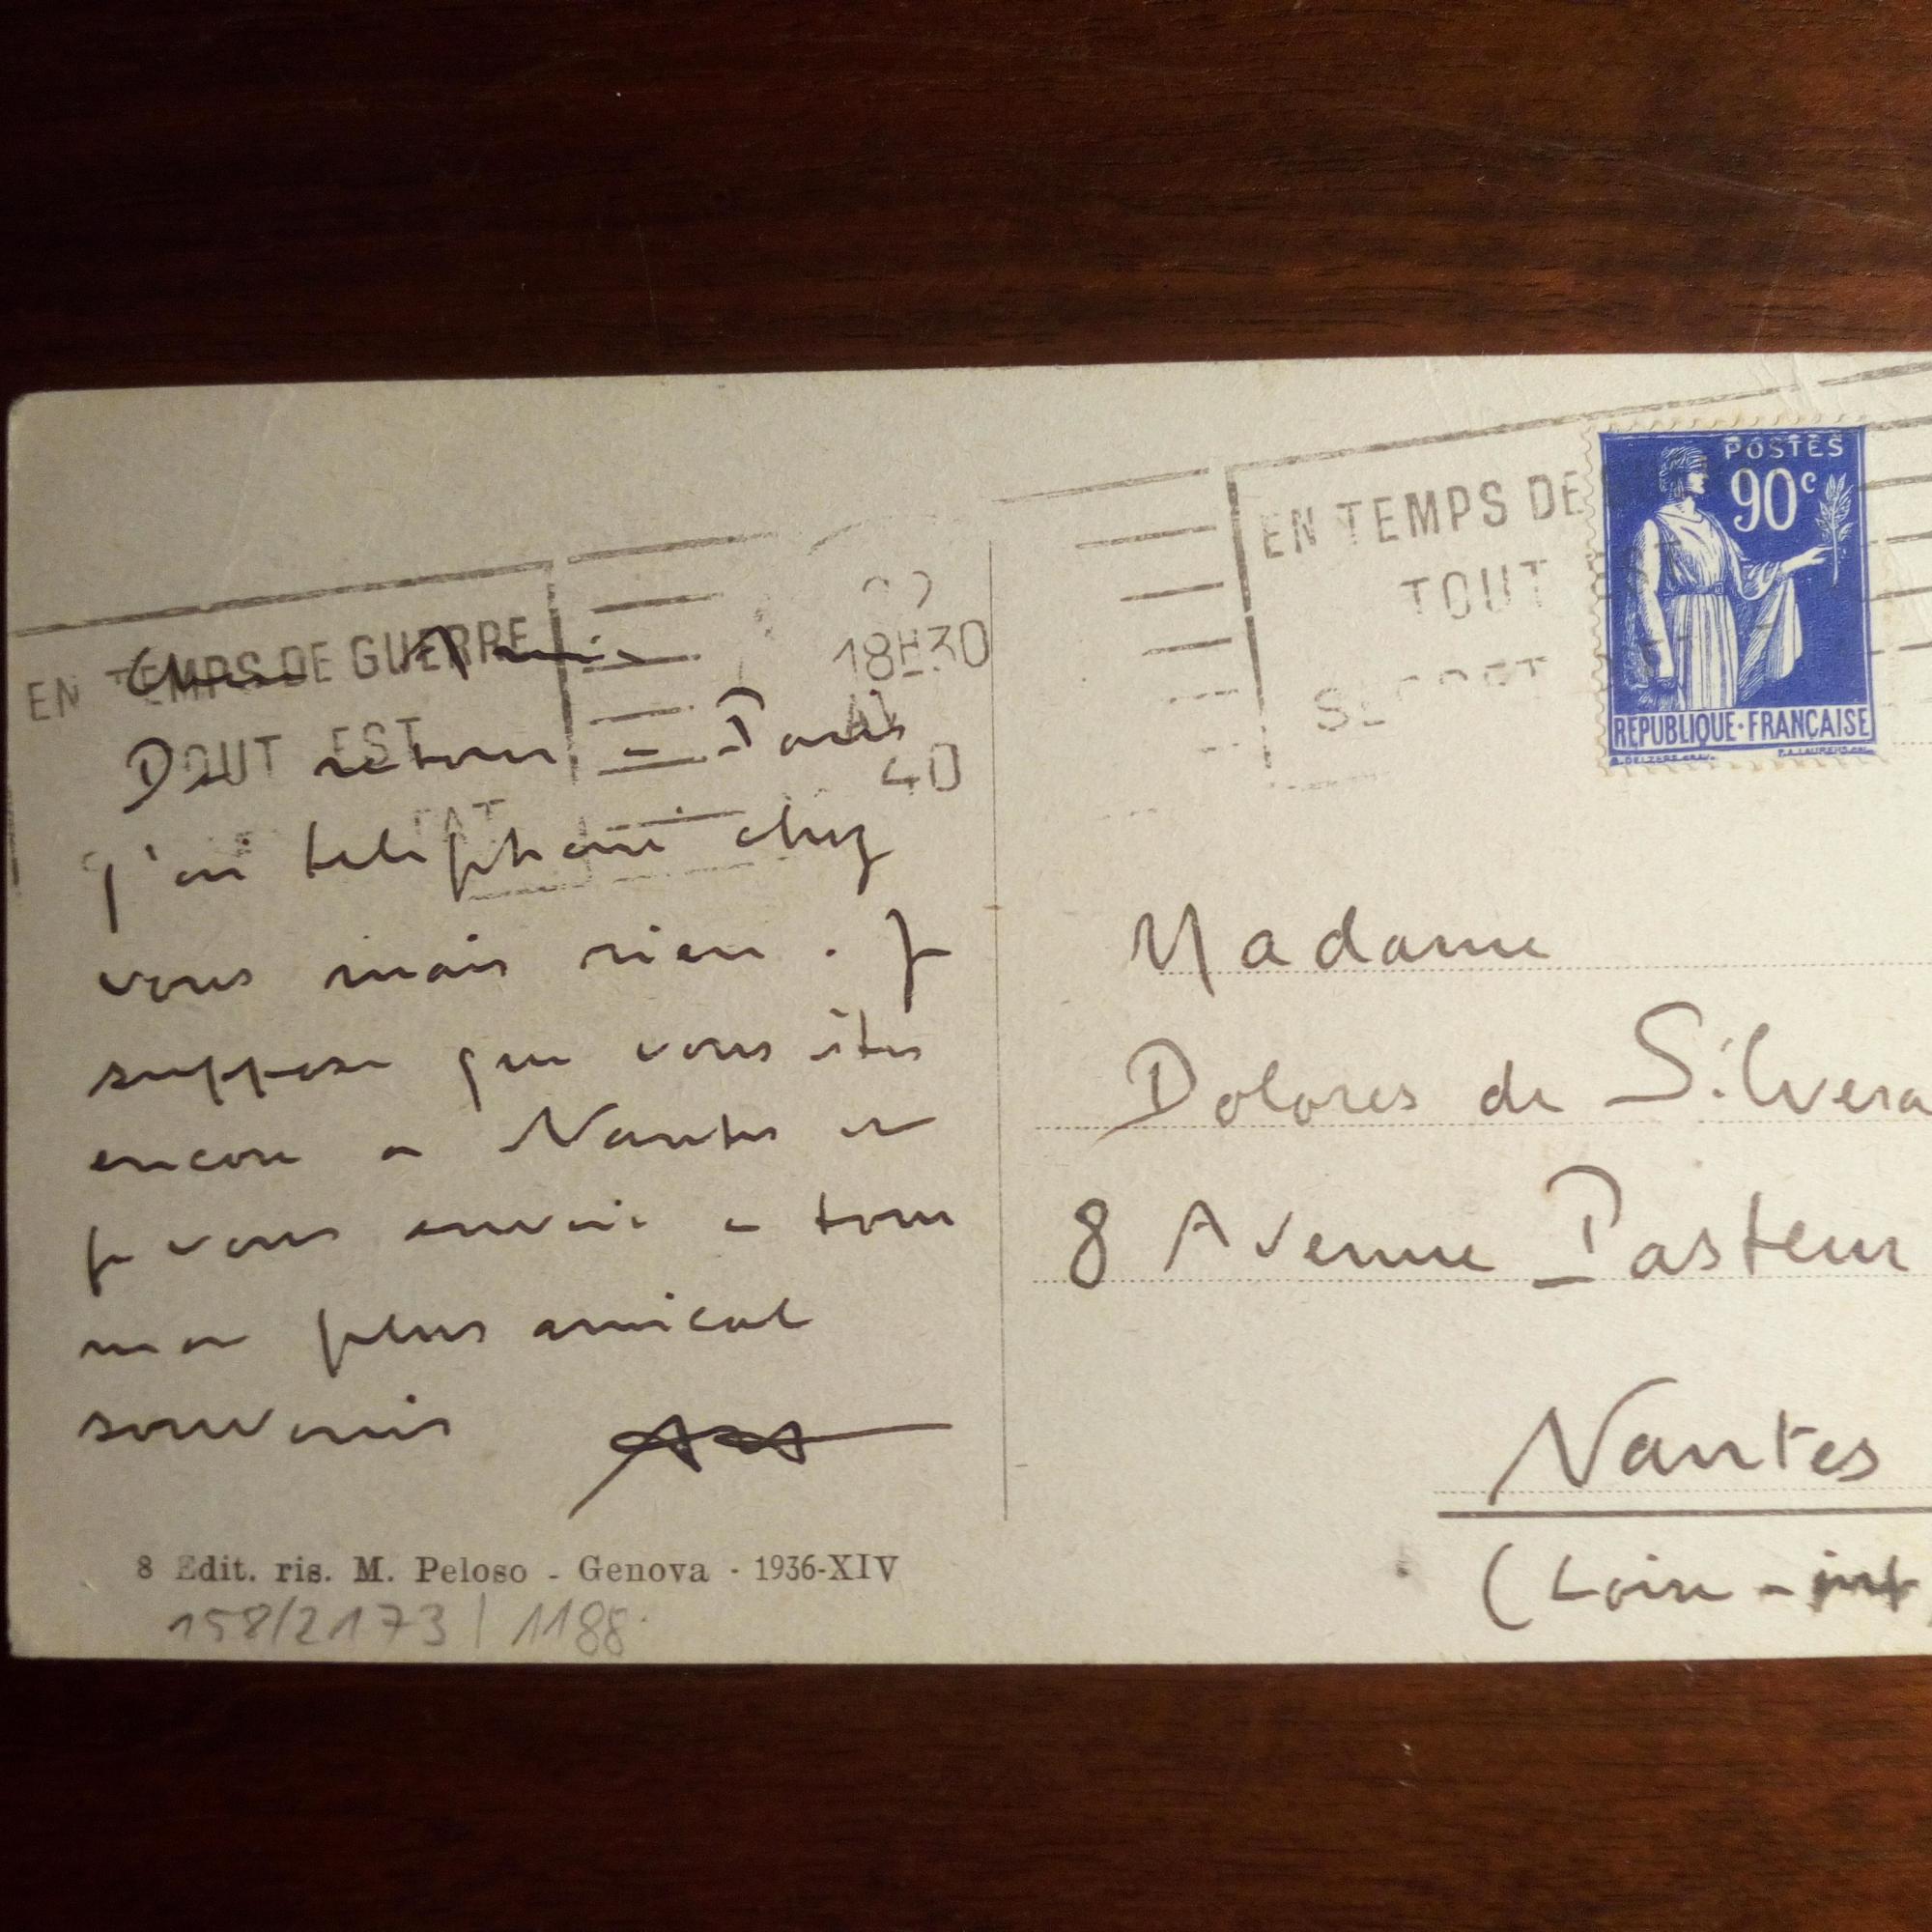 Chers Amis
De retour a Paris
j'ai telephoné chez
vous mais rien. Je
suppose que vous êtes
encore a Nantes et
je vous envoie a tous
mon plus amical
souvenir
8 Edit. ris. M. Peloso - Genova - 1936-XIV
158/2173 | 1188
EN TEMPS DE GUERRE
TOUT EST
18H30
40
EN TEMPS DE
TOUT
SECRET
POSTES
90c
REPUBLIQUE·FRANÇAISE
Madame
Dolores de Silvera
8 Avenue Pasteur
Nantes
(Loire - inf